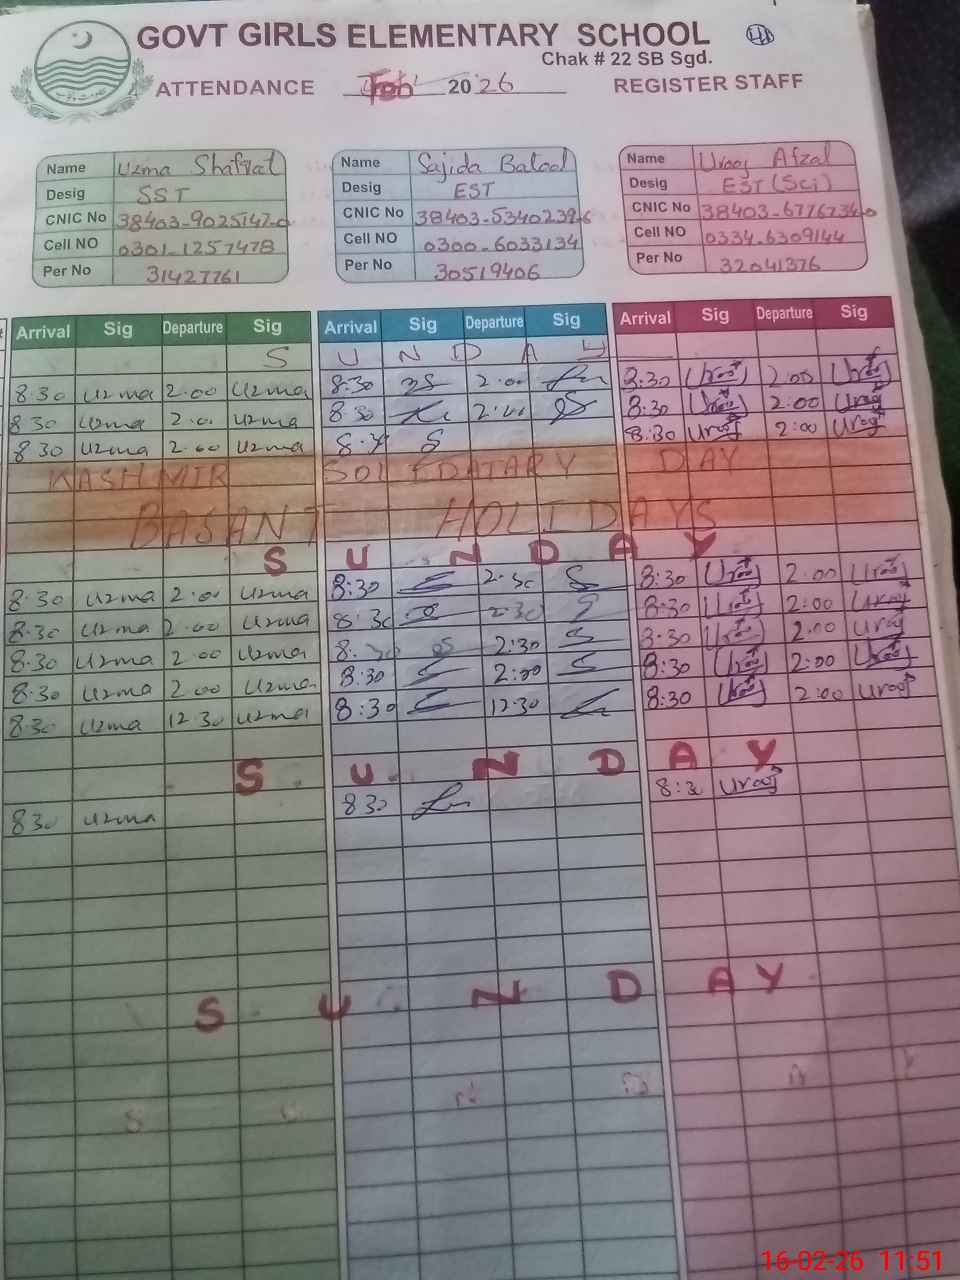 GOVT GIRLS ELEMENTARY SCHOOL
Chak # 22 SB Sgd.
ATTENDANCE Feb 2026 REGISTER STAFF
Name Uzma Shafqat
Desig SST
CNIC No 38403-9025147-0
Cell NO 0301-1257478
Per No 31427761
Name Sajida Batool
Desig EST
CNIC No 38403-5340239-6
Cell NO 0300-6033134
Per No 30519406
Name Urooj Afzal
Desig EST (Sci)
CNIC No 38403-6776734-0
Cell NO 0334-6309144
Per No 32041376
Arrival Sig Departure Sig Arrival Sig Departure Sig Arrival Sig Departure Sig
S U N D A Y
8.30 Uzma 2.00 Uzma 8:30 2:00 8:30 Urooj 2:00 Urooj
8.30 Uzma 2.00 Uzma 8:30 2:00 8:30 Urooj 2:00 Urooj
8 30 Uzma 2.00 Uzma 8:30 Urooj 2:00 Urooj
KASHMIR SOLEDATARY DAY
BASANT HOLIDAYS
S U N D A Y
8.30 Uzma 2.00 Uzma 8:30 2:30 8:30 Urooj 2:00 Urooj
8.30 Uzma 2.00 Uzma 8:30 2:30 8:30 Urooj 2:00 Urooj
8.30 Uzma 2.00 Uzma 8:30 2:30 8:30 Urooj 2:00 Urooj
8.30 Uzma 2.00 Uzma 8:30 2:00 8:30 Urooj 2:00 Urooj
8.30 Uzma 12.30 Uzma 8:30 12:30 8:30 Urooj 2:00 Urooj
S U N D A Y
8 30 Uzma 8 30 8:30 Urooj
S U N D A Y
16-02-26 11:51